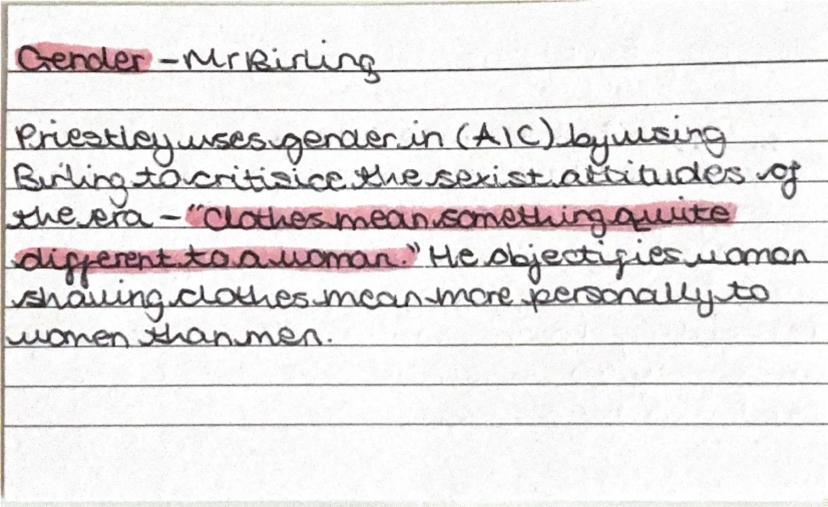 Gender - Mr Birling
Priestley uses gender in (AIC) by using
Birling to critisice the sexist attitudes of
the era - "Clothes mean something quite
different to a woman." He objectifies woman
shaving clothes mean more personally to
women than men.